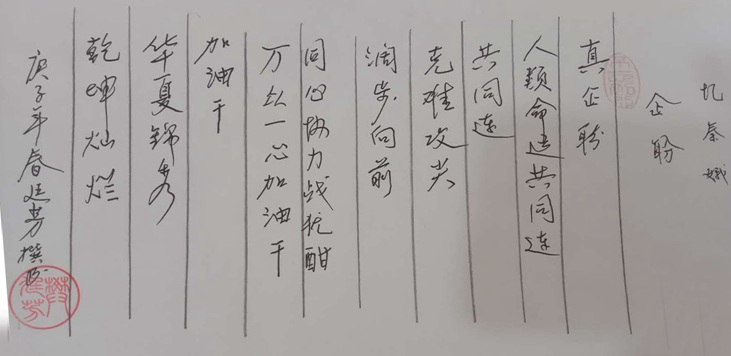 忆秦娥
企盼
真企盼
人类命运共同连
共同连
克难攻关
阔步向前
同心协力战犹酣
万众一心加油干
加油干
华夏锦秀
乾坤灿烂
庚子年春廷芳撰